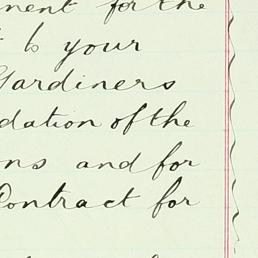 ment for the
to your
Gardiners
dation of the
ons and for
Contract for